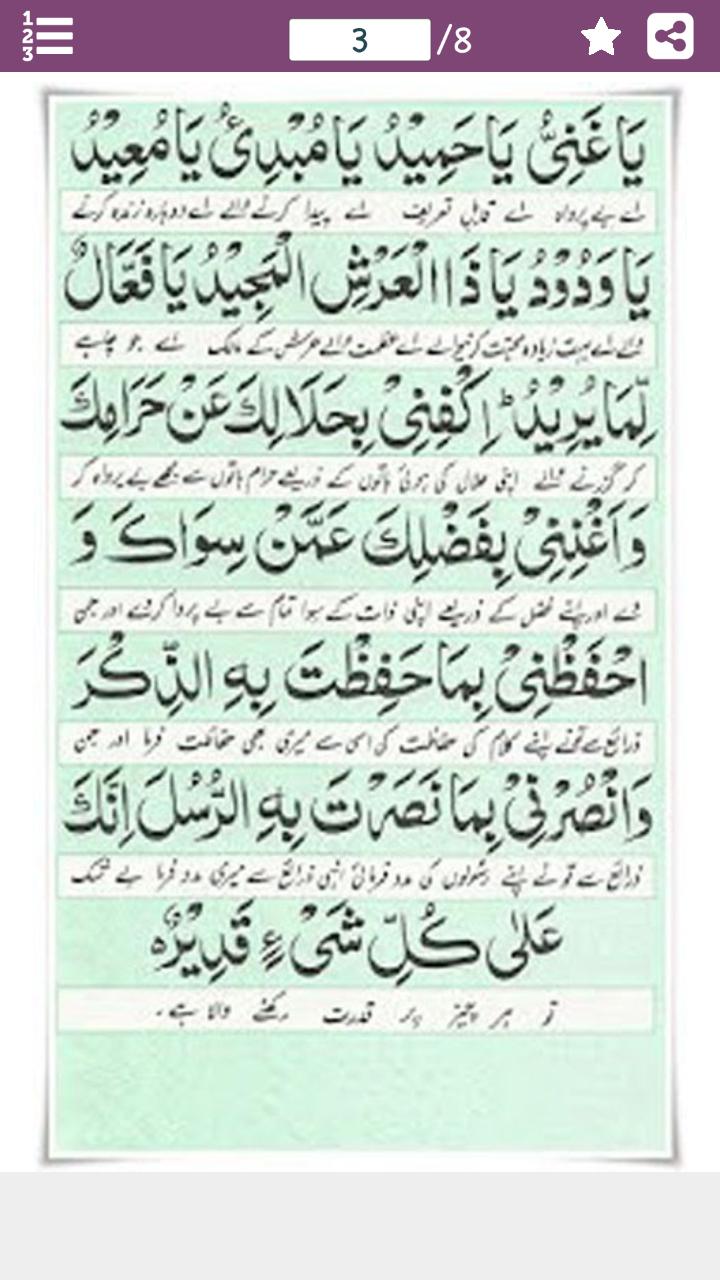 3 /8
يَا غَنِيُّ يَا حَمِيْدُ يَا مُبْدِئُ يَا مُعِيْدُ
اے بے پرواہ اے قابل تعریف اے پیدا کرنے والے اے دوبارہ زندہ کرنے
يَا وَدُوْدُ يَا ذَا الْعَرْشِ الْمَجِيْدُ يَا فَعَّالٌ
والے اے بہت زیادہ محبت کرنیوالے اے عظمت والے عرش کے مالک اے جو چاہے
لِّمَا يُرِيْدُ ط اِكْفِنِيْ بِحَلَالِكَ عَنْ حَرَامِكَ
کر گزرنے والے اپنی حلال کی ہوئی باتوں کے ذریعے حرام باتوں سے مجھے بے پرواہ کر
وَاَغْنِنِيْ بِفَضْلِكَ عَمَّنْ سِوَاكَ وَ
دے اور اپنے فضل کے ذریعے اپنی ذات کے سوا تمام سے بے پروا کر دے اور جن
احْفَظْنِيْ بِمَا حَفِظْتَ بِهِ الذِّكْرَ
ذرائع سے تونے اپنے کلام کی حفاظت کی اسی سے میری بھی حفاظت فرما اور جن
وَانْصُرْنِيْ بِمَا نَصَرْتَ بِهِ الرُّسُلَ اِنَّكَ
ذرائع سے تونے اپنے رسولوں کی مدد فرمائی انہی ذرائع سے میری مدد فرما بے شک
عَلٰى كُلِّ شَىْءٍ قَدِيْرٌ ہ
تو ہر چیز پر قدرت رکھنے والا ہے۔